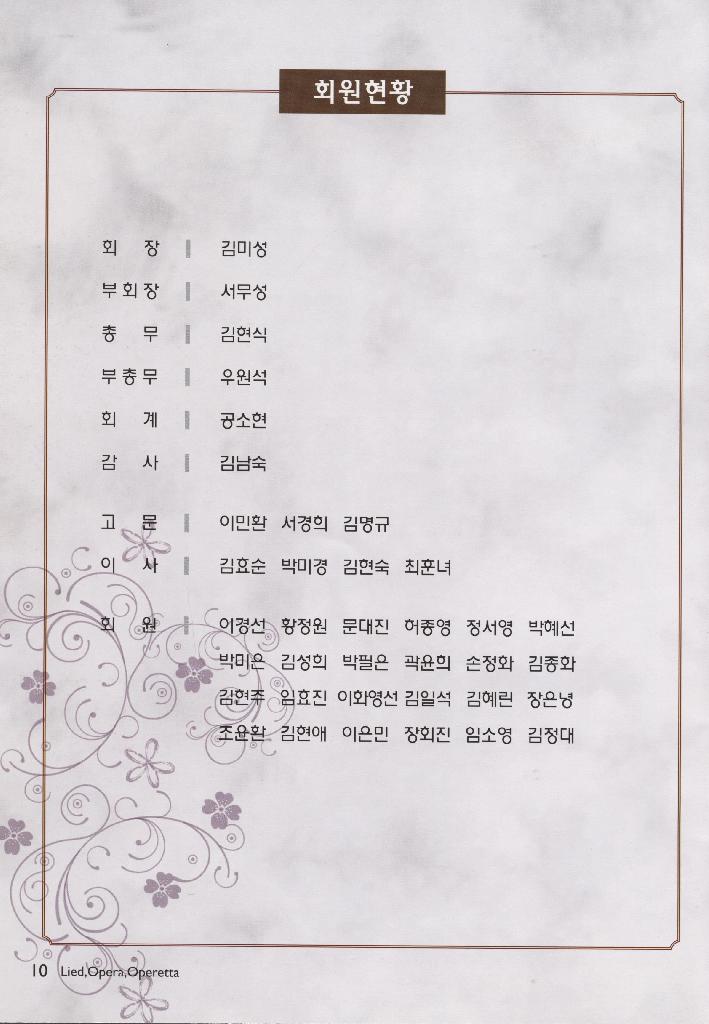 회원현황
회 장 김미성
부회장 서무성
총 무 김현식
부총무 우원석
회 계 공소현
감 사 김남숙
고 문 이민환 서경희 김명규
이 사 김효순 박미경 김현숙 최훈녀
회 원 이경선 황정원 문대진 허종영 정서영 박혜선
박미은 김성희 박필은 곽윤희 손정화 김종화
김현주 임효진 이화영선 김일석 김혜린 장은녕
조윤환 김현애 이은민 장회진 임소영 김정대
10 Lied,Opera,Operetta